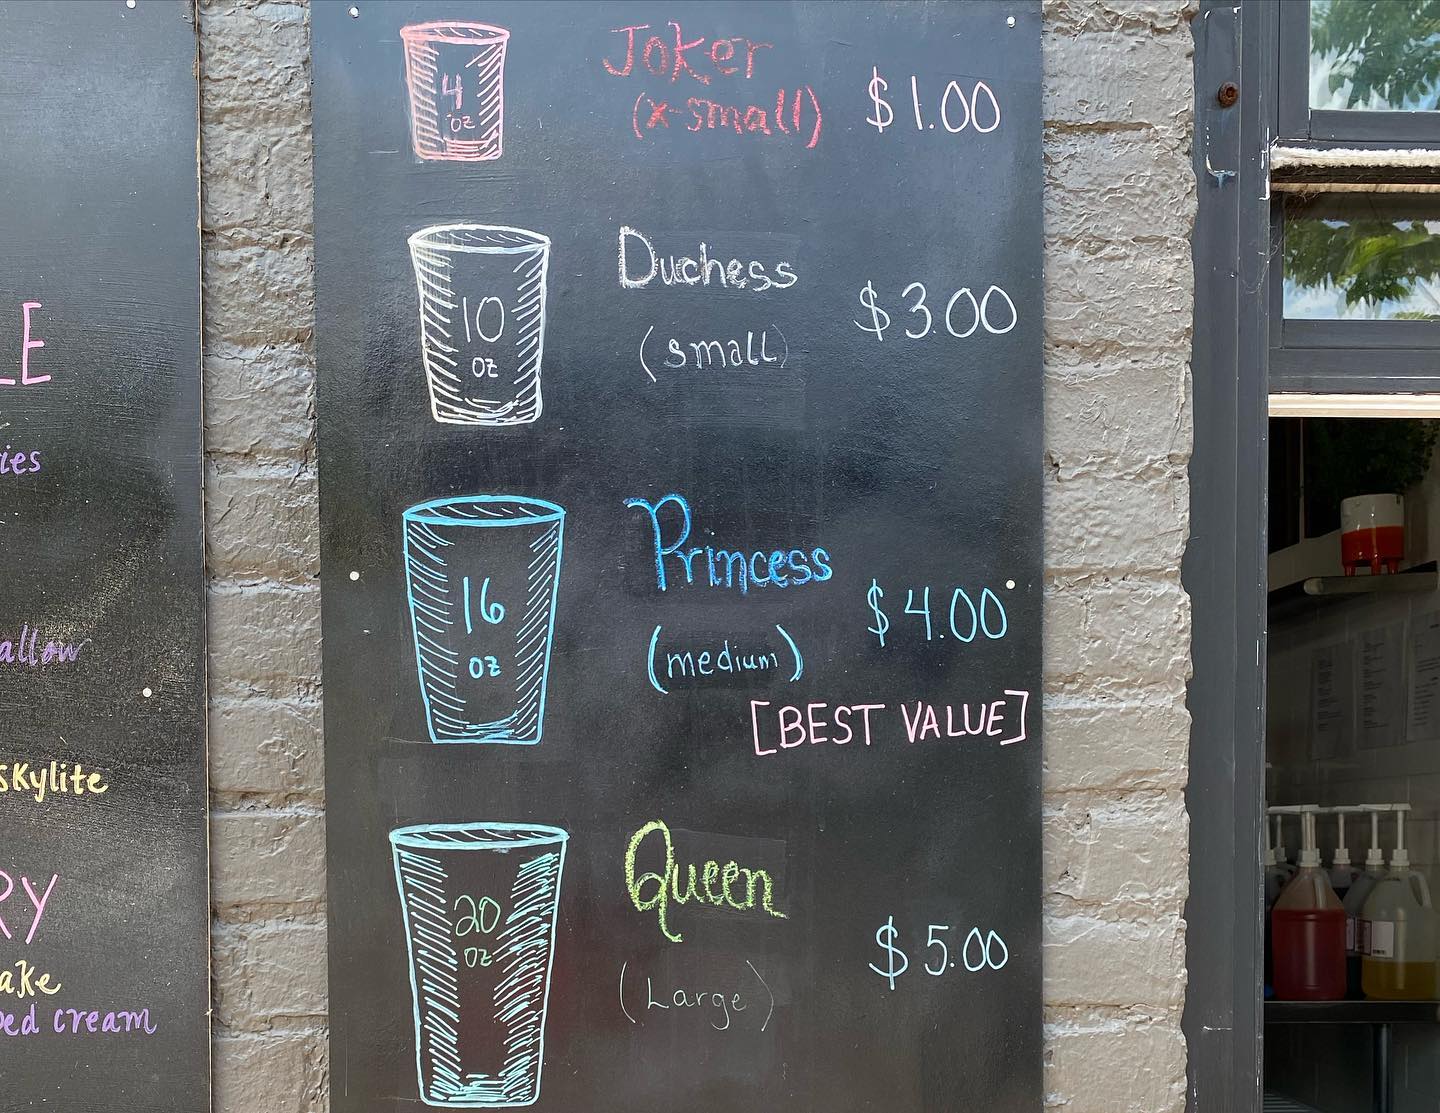 4
oz
Joker
(x-small)
$1.00
10
oz
Duchess
(small)
$3.00
16
oz
Princess
(medium)
$4.00
[BEST VALUE]
20
oz
Queen
(Large)
$5.00
LE
ies
allow
skylite
RY
ake
ped cream